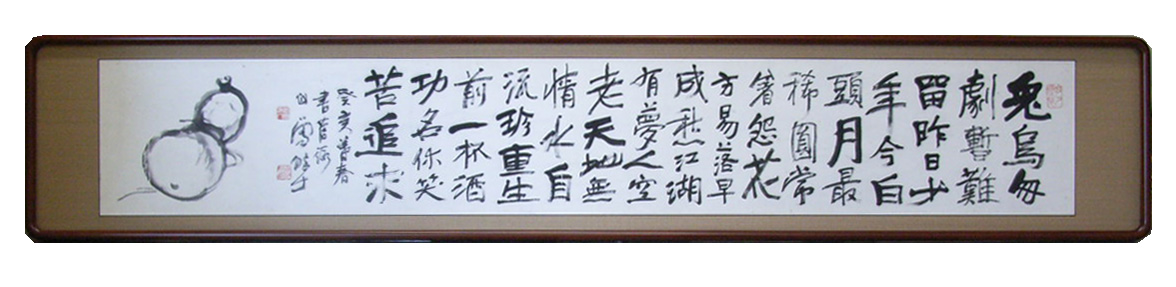 兎烏匆
劇暫難
留昨日少
年今白
頭月最
稀圓常
著怨花
方易落早
成愁江湖
有夢人空
老天地無
情水自
流珍重生
前一杯酒
功名休笑
苦追求
癸亥暮春